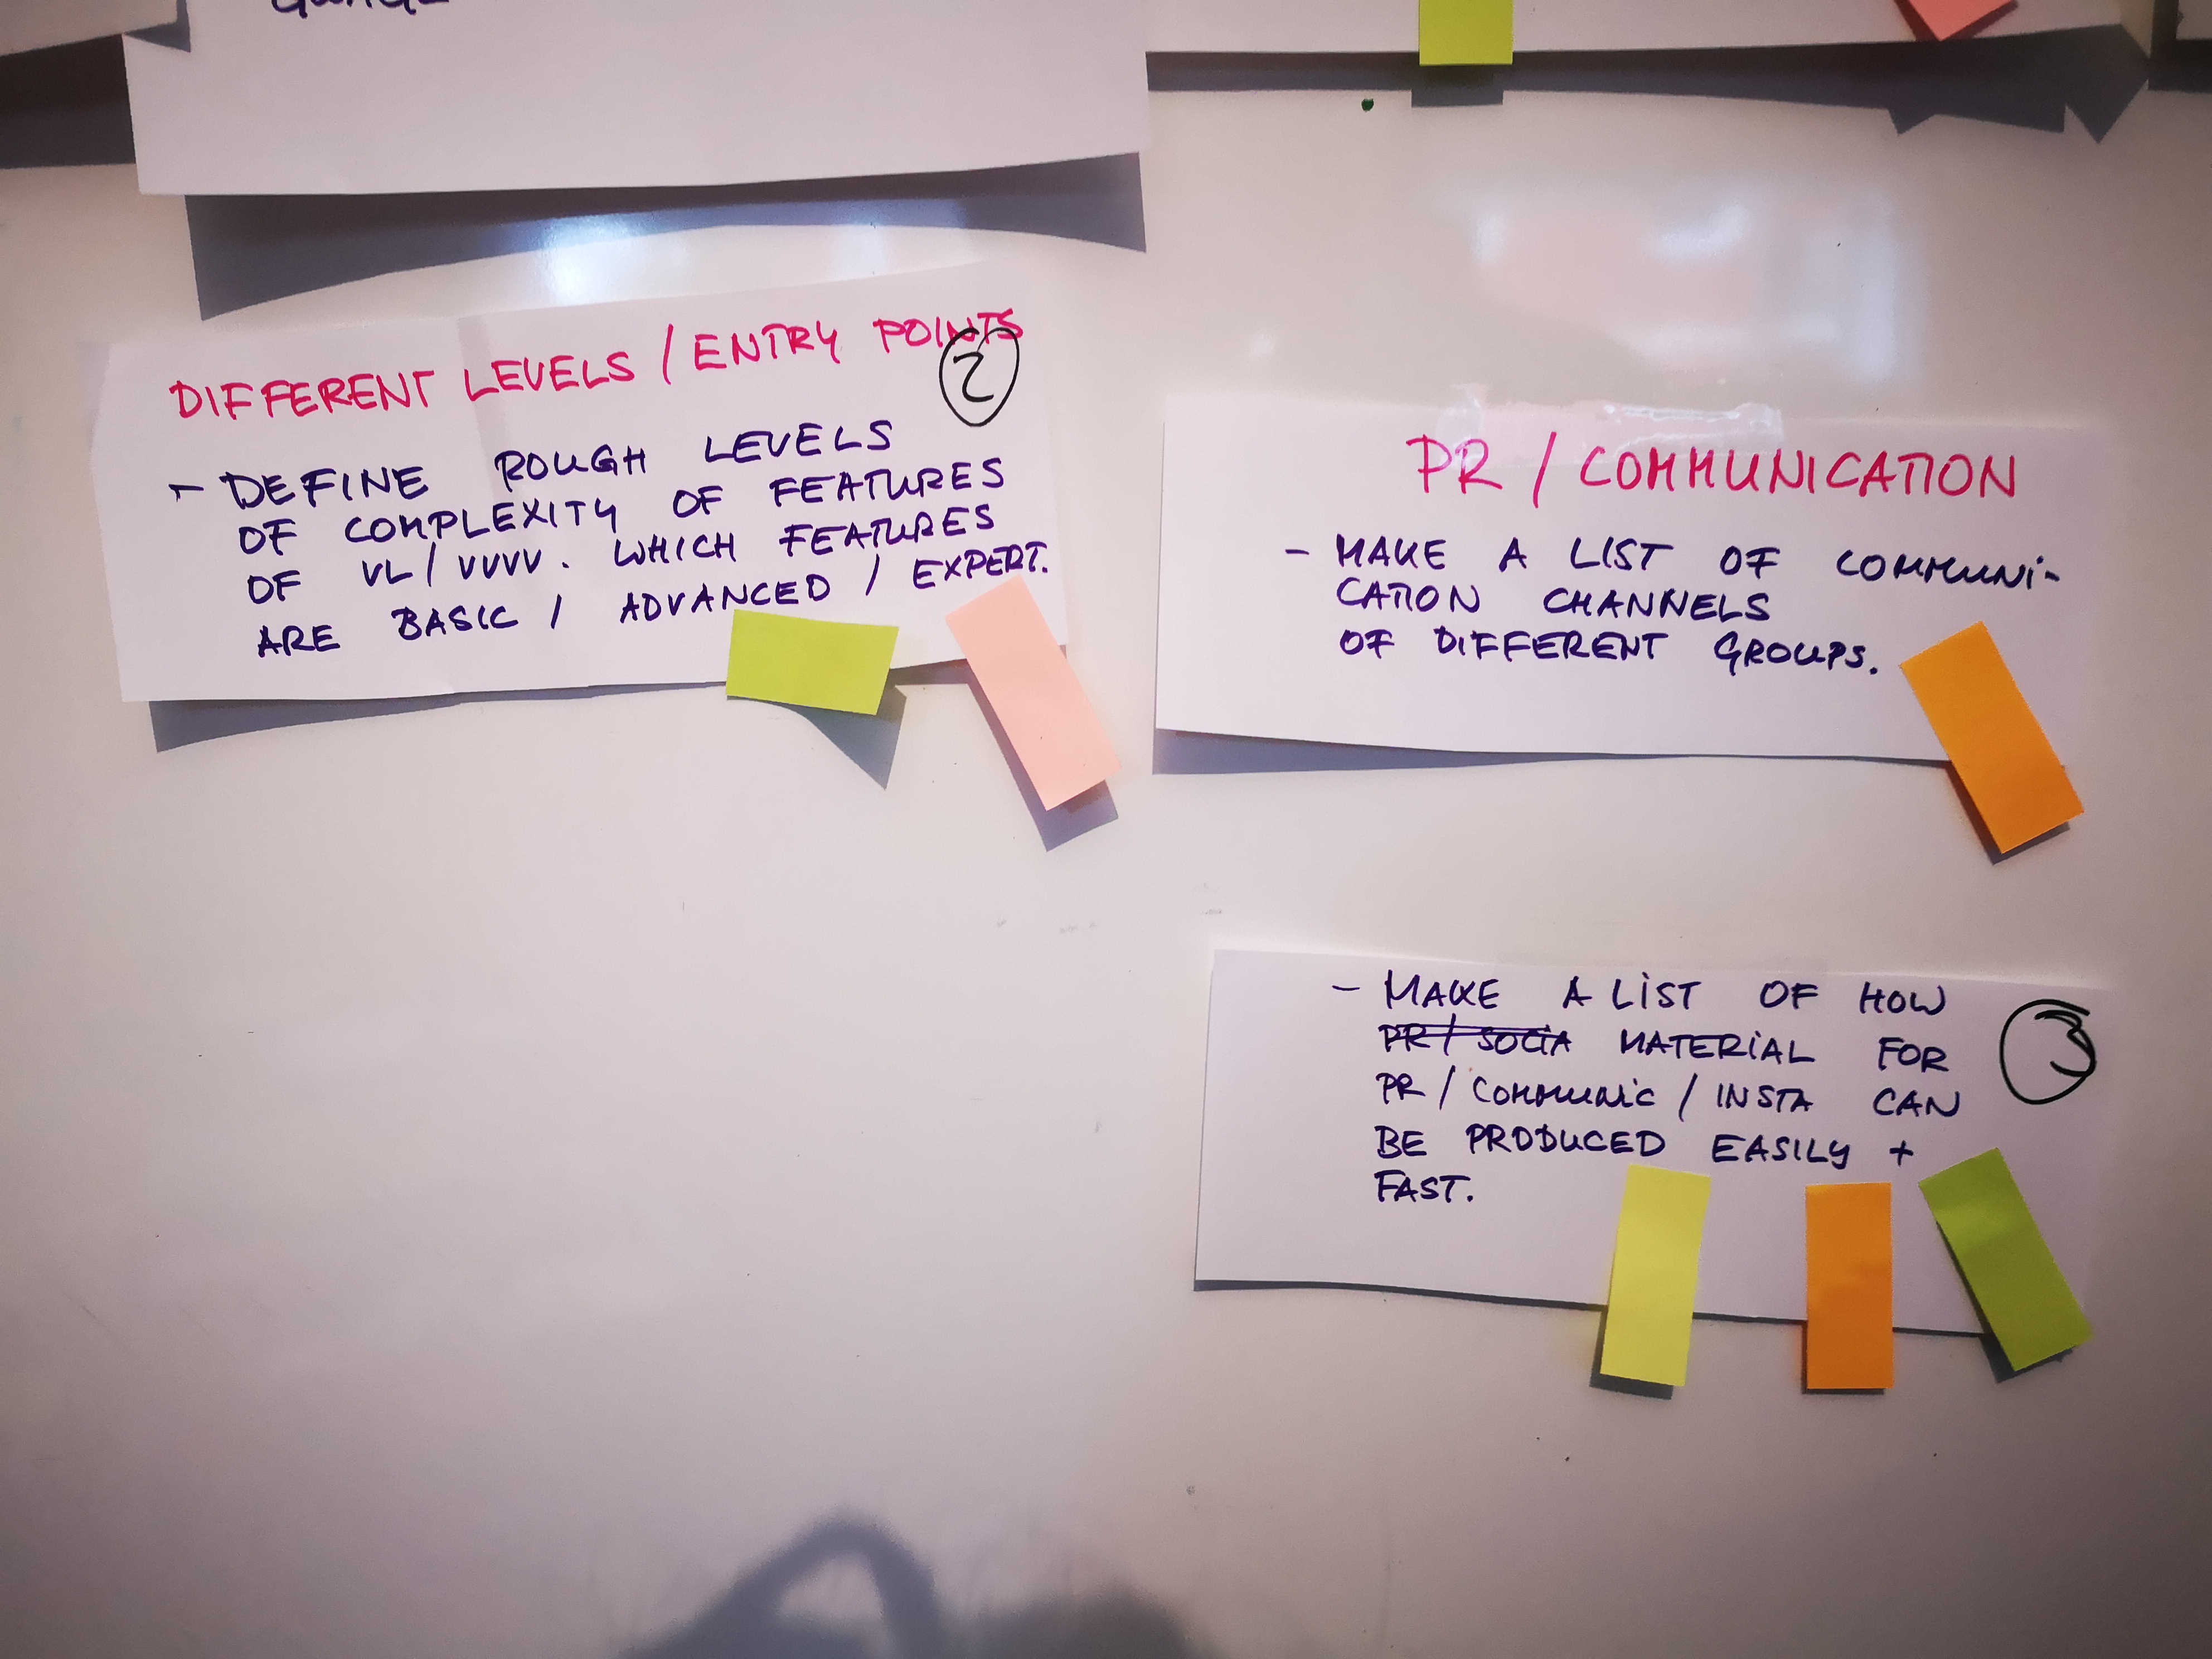 DIFFERENT LEVELS / ENTRY POINTS
2
- DEFINE ROUGH LEVELS
OF COMPLEXITY OF FEATURES
OF VL / VVVV. WHICH FEATURES
ARE BASIC / ADVANCED / EXPERT.
PR / COMMUNICATION
- MAKE A LIST OF COMMUNI-
CATION CHANNELS
OF DIFFERENT GROUPS.
- MAKE A LIST OF HOW
PR / SOCIA MATERIAL FOR
PR / COMMUNIC / INSTA CAN
BE PRODUCED EASILY +
FAST.
3